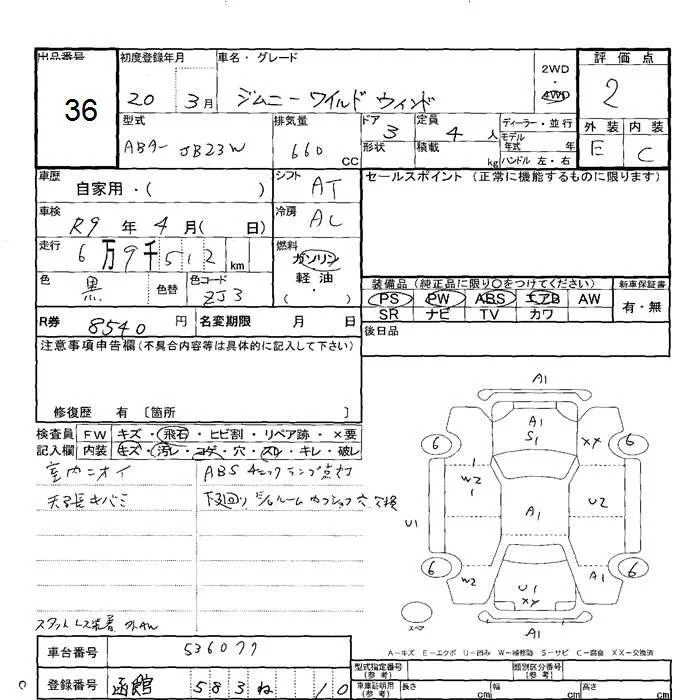 出品番号 初度登録年月 車名・グレード 評価点
36
20 3月 ジムニー ワイルド ウィンド
2WD
4WD
2
型式 排気量 ドア 定員 ディーラー・並行 外装 内装
ABA- JB23W 660 CC 3 4人
モデル年式 年
形状 積載 kg ハンドル 左・右 E C
車歴 シフト セールスポイント (正常に機能するものに限ります)
自家用・( ) AT
車検 冷房
R9年 4月( 日) AC
走行 燃料
6万9千512 km ガソリン
色 色替 色コード 軽油
黒 ZJ3 ・( )
装備品 (純正品に限り○をつけてください) 新車保証書
PS PW ABS エアB AW 有・無
SR ナビ TV カワ
R券 8540 円 名変期限 月 日 後日品
注意事項申告欄 (不具合内容等は具体的に記入して下さい)
修復歴 有 〔箇所 〕
検査員 FW キズ・飛石・ヒビ割・リペア跡・×要
記入欄 内装 キズ・汚レ・コゲ・穴・スレ・キレ・破レ
室内ニオイ ABS チェックランプ点灯
天張キバミ 下廻り
A1
A1
S1 XX
6 6
W2 1 1
U1 A1 U2
6 6
W2 U1 XX A1
A1
スペア
スタットレス装着 外AW
A−キズ E−エクボ U−凹み W−補修跡 S−サビ C−腐食 XX−交換済
車台番号 536077
登録番号 函館 583 ね 10
型式指定番号 (参考) 類別区分番号 (参考)
車庫証明用 (参考) 長さ cm 幅 cm 高さ cm